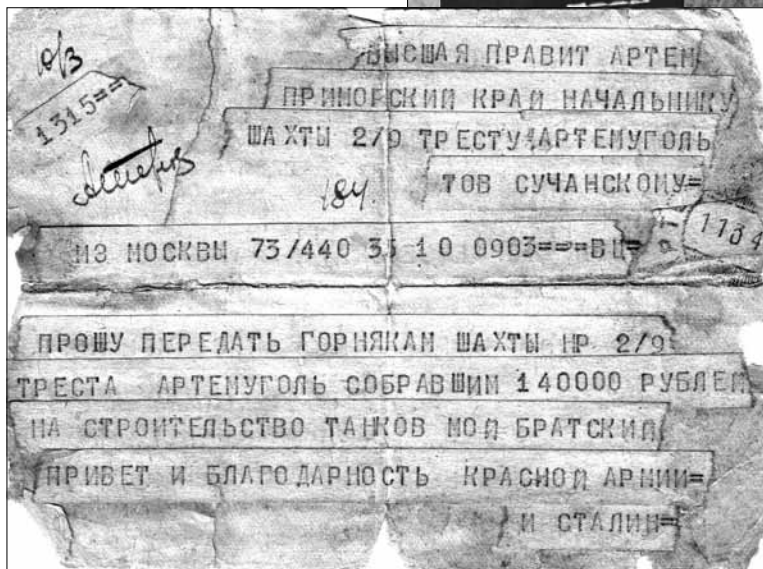 1315==
ВЫСШАЯ ПРАВИТ АРТЕМ
ПРИМОРСКИЙ КРАЙ НАЧАЛЬНИКУ
ШАХТЫ 2/9 ТРЕСТУ АРТЕМУГОЛЬ
184.
ТОВ СУЧАНСКОМУ=
ИЗ МОСКВЫ 73/440 35 10 0903===ВЦ=
ПРОШУ ПЕРЕДАТЬ ГОРНЯКАМ ШАХТЫ НР 2/9
ТРЕСТА АРТЕМУГОЛЬ СОБРАВШИМ 140000 РУБЛЕЙ
НА СТРОИТЕЛЬСТВО ТАНКОВ МОЙ БРАТСКИЙ
ПРИВЕТ И БЛАГОДАРНОСТЬ КРАСНОЙ АРМИИ=
И СТАЛИН=